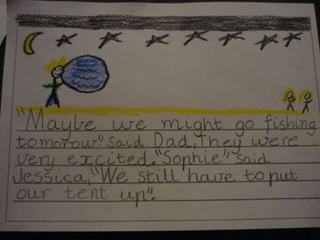 "Maybe we might go fishing
tomorow" said Dad, They were
very excited. "Sophie" said
Jessica, "We still have to put
our tent up".